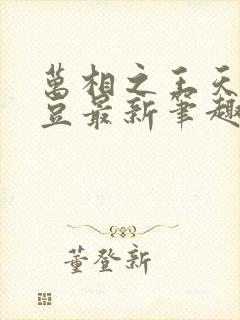 萬相之王天
豆最新筆趣
董登新